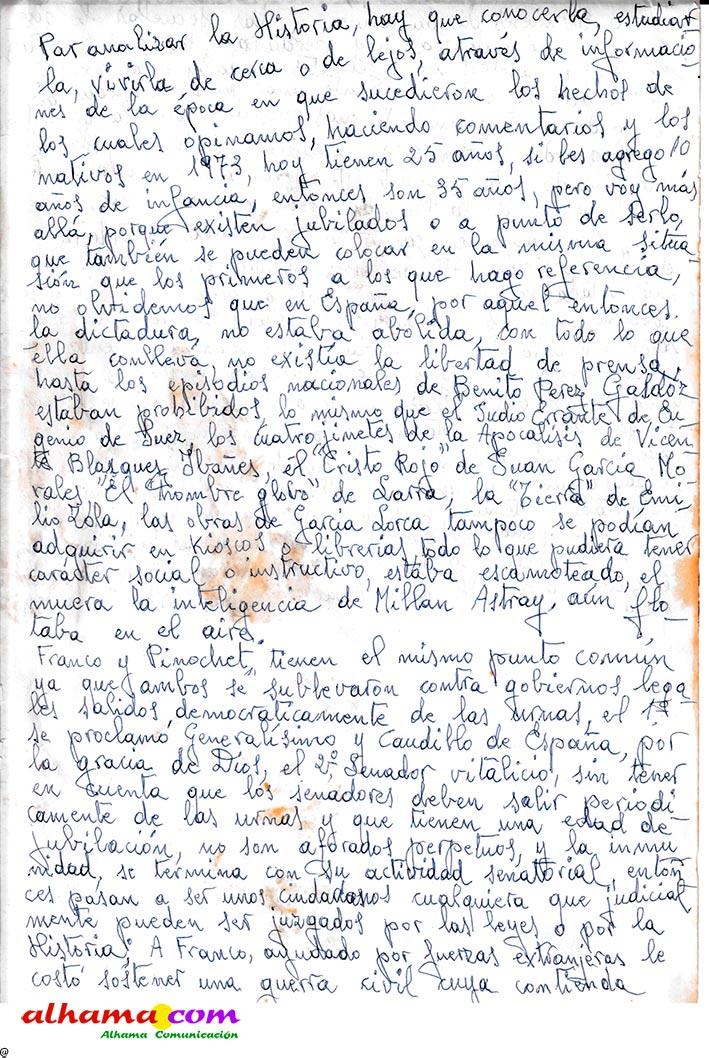 Par analizar la Historia, hay que conocerla, estudiar
la, vivirla, de cerca o de lejos, através de informacio-
nes de la época en que sucedieron los hechos de
los cuales opinamos, haciendo comentarios y los
nativos en 1973, hoy tienen 25 años, si les agrego 10
años de infancia, entonces son 35 años, pero voy más
allá, porque existen jubilados o a punto de serlo,
que también se pueden colocar en la misma situa-
sión que los primeros a los que hago referencia,
no olvidemos que en España, por aquel entonces.
la dictadura, no estaba abolida, con todo lo que
élla conlleva, no existía la libertad de prensa,
hasta los episodios nacionales de Benito Perez Galdoz
estaban prohibidos, lo mismo que el Judio Errante de Eu-
genio de Suez, los cuatro jinetes de la Apocalisis de Vicen-
te Blasques Ibañes, él "Cristo Rojo" de Juan García Mo-
rales "El hombre globo" de Larra, la "Tierra" de Emi-
lio Zóla, las obras de Garcia Lorca tampoco se podían
adquirir en Kioscos o librerias, todo lo que pudiera tener
carácter social o instructivo, estaba escamoteado, el
muera la inteligencia de Millan Astray, aún flo-
taba en el aire.
Franco y Pinochet, tienen el mismo punto común
ya que ambos se sublevaron contra gobiernos lega-
les salidos, democráticamente de las urnas, el 1º
se proclamó Generalísimo y Caudillo de España, por
la gracia de Dios, el 2º, Senador vitalicio, sin tener
en cuenta que los senadores deben salir periodi-
camente de las urnas y que tienen una edad de
jubilación, no son aforados perpetuos, y la inmu
nidad, se termina con su actividad senatorial, enton
ces pasan a ser unos ciudadanos cualquiera que judicial
mente pueden ser juzgados por las leyes o por la
Historia; A Franco, ayudado por fuerzas extranjeras le
costó sostener una guerra civil cuya contienda
alhama.com
Alhama Comunicación
@